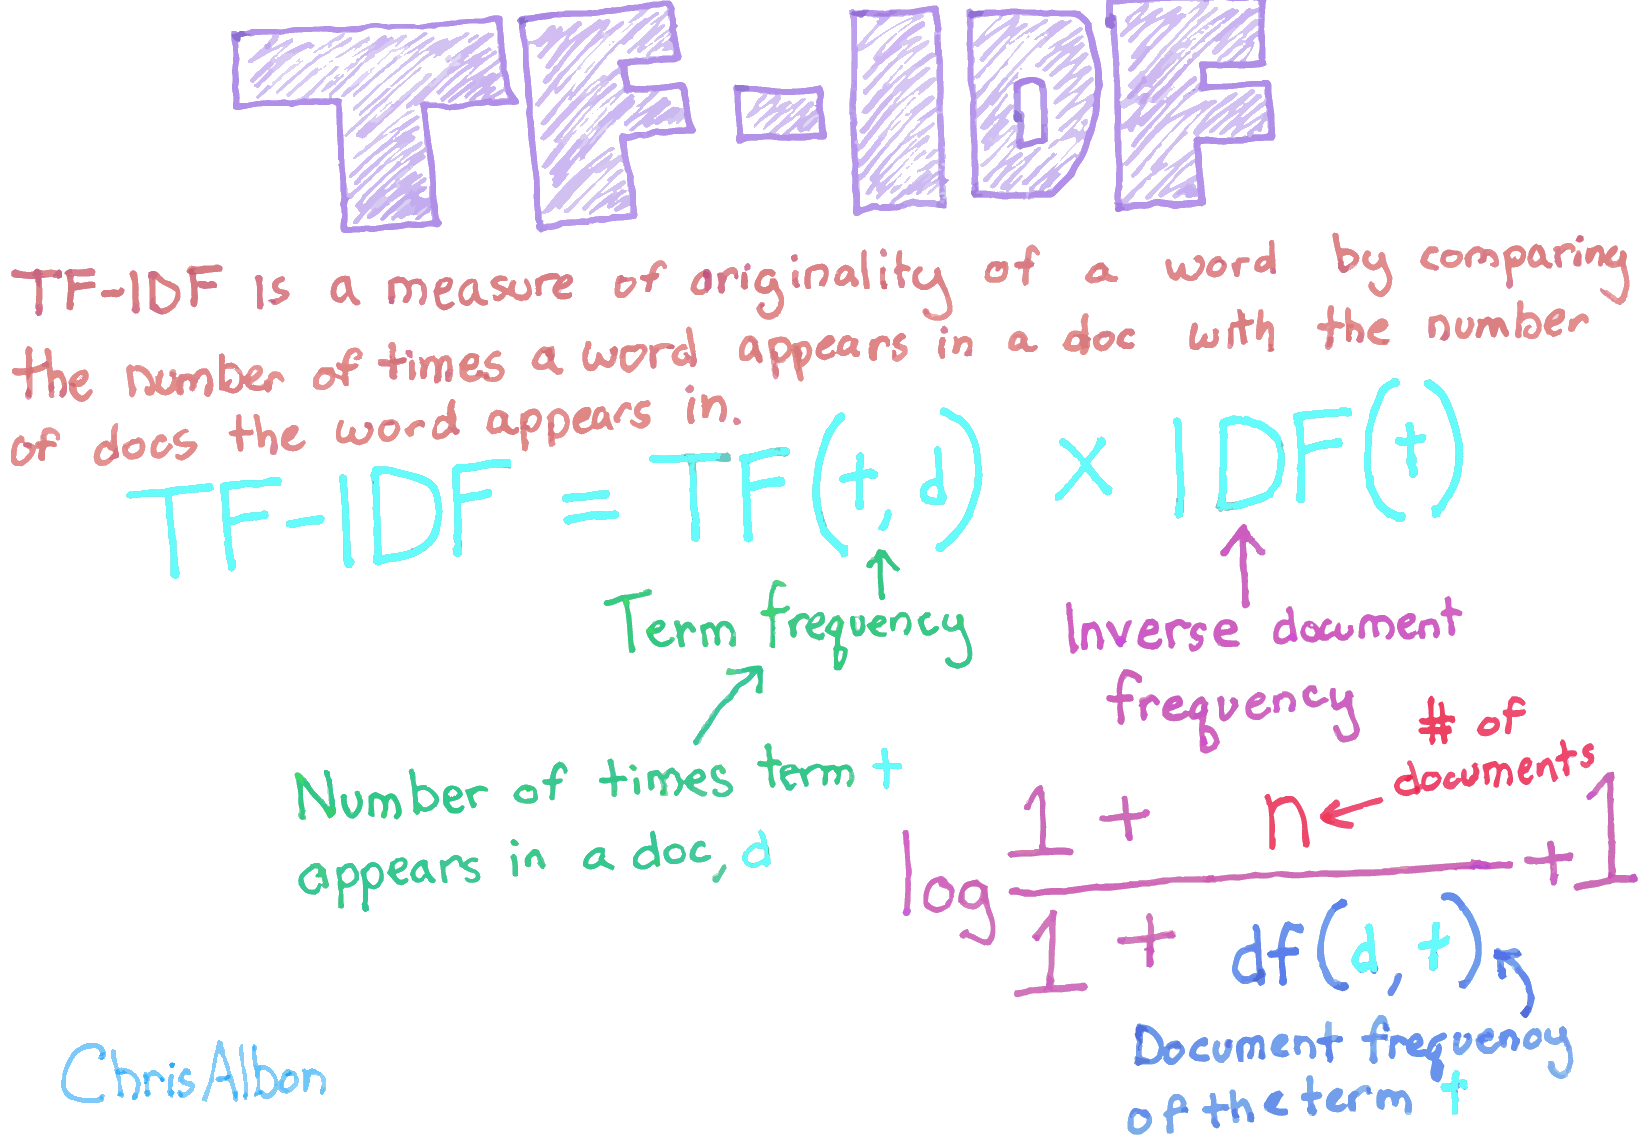 TF-IDF
TF-IDF is a measure of originality of a word by comparing
the number of times a word appears in a doc with the number
of docs the word appears in.
TF-IDF = TF(t,d) × IDF(t)
Term frequency
Inverse document
frequency
Number of times term t
appears in a doc, d
# of
documents
log 1 + n / 1 + df(d, t) + 1
Document frequency
of the term t
Chris Albon